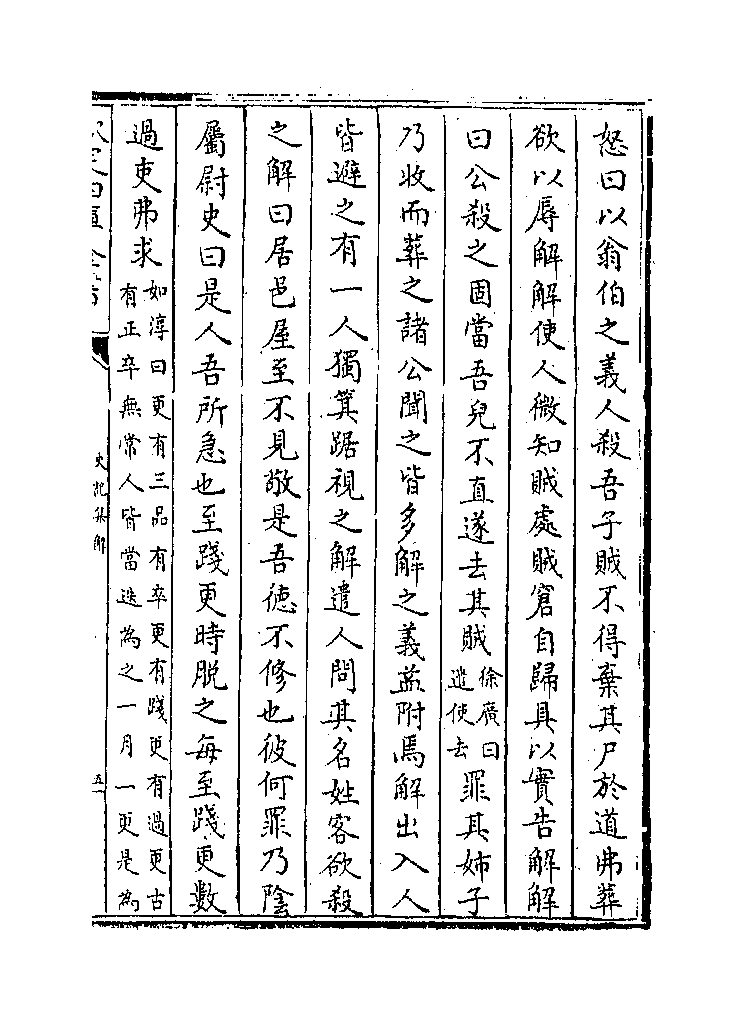 怒曰以翁伯之義人殺吾子賊不得棄其尸於道弗葬
欲以辱解解使人微知賊處賊窘自歸具以實告解解
曰公殺之固當吾兒不直遂去其賊徐廣曰遣使去罪其姉子
乃收而葬之諸公聞之皆多解之義益附焉解出入人
皆避之有一人獨箕踞視之解遣人問其名姓客欲殺
之解曰居邑屋至不見敬是吾徳不修也彼何罪乃陰
屬尉史曰是人吾所急也至踐更時脫之每至踐更數
過吏弗求如淳曰更有三品有卒更有踐更有過更古有正卒無常人皆當迭為之一月一更是為
史記集解